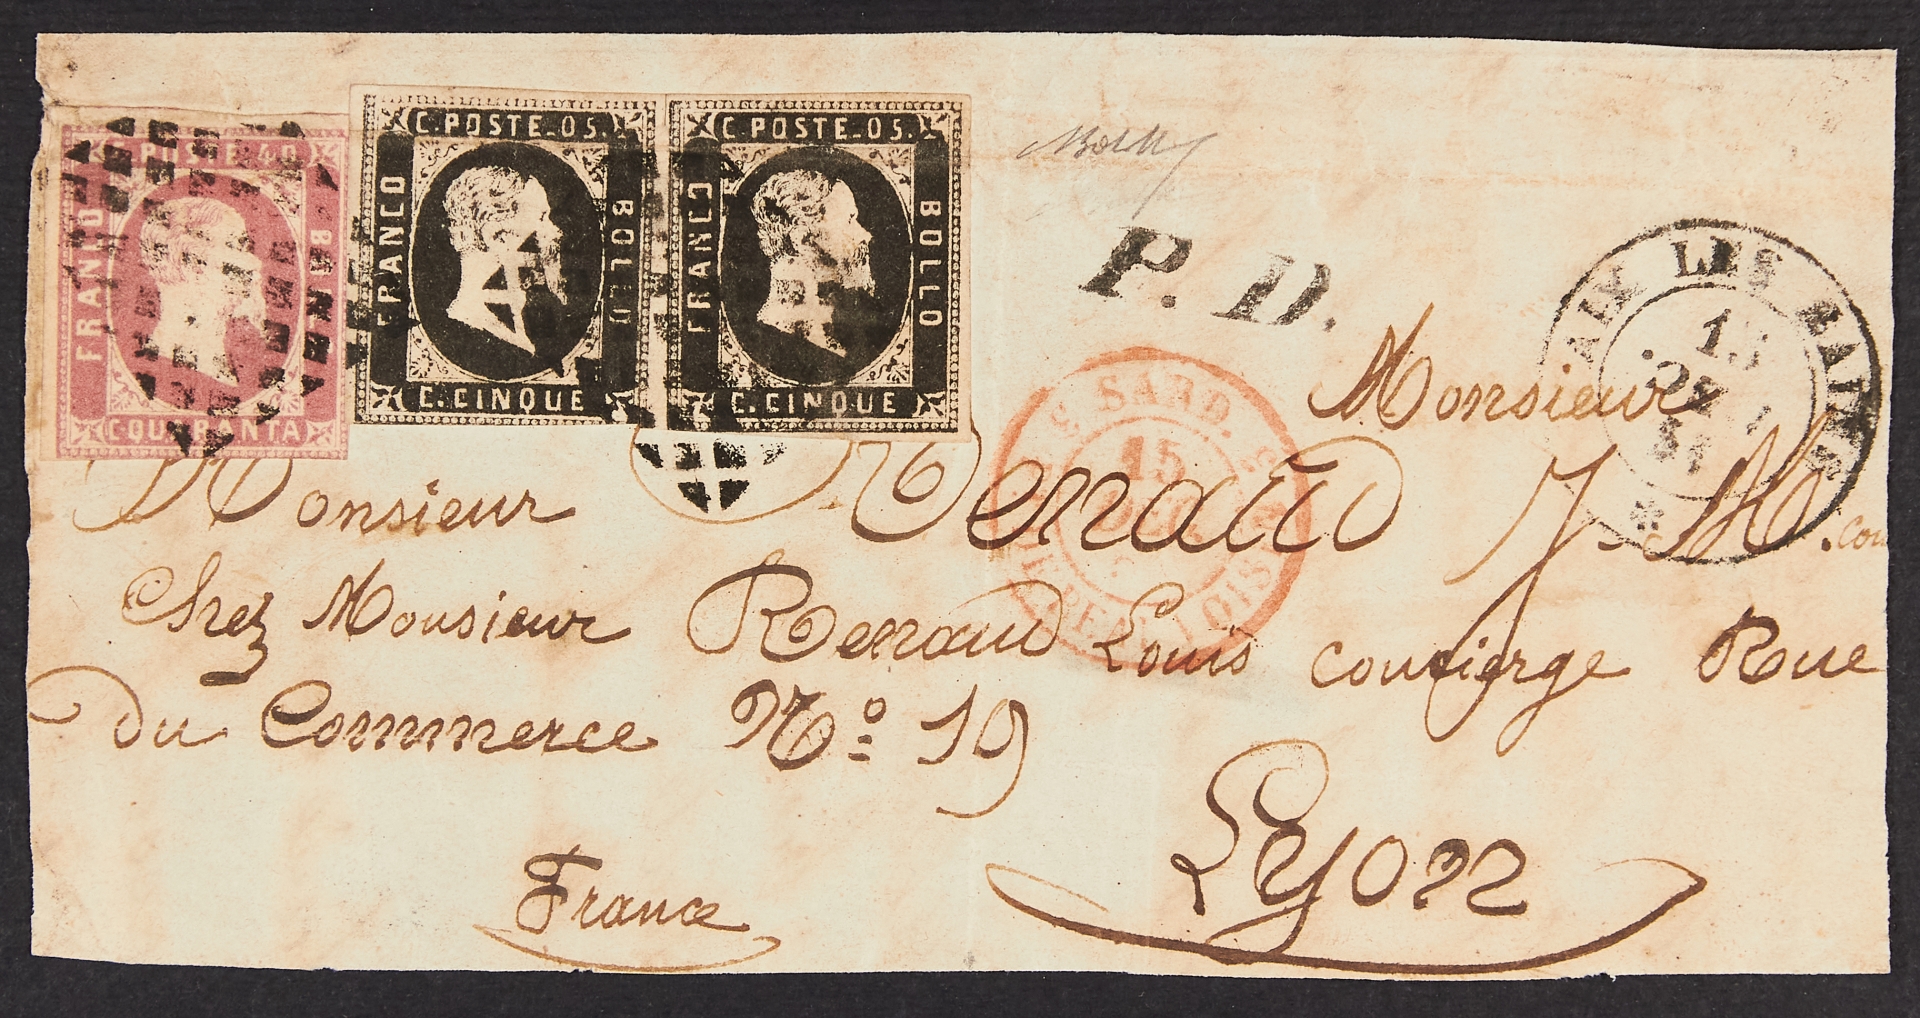 C. POSTE. 40.
FRANCO
BOLLO
C. QUARANTA
C. POSTE. 05.
FRANCO
BOLLO
C. CINQUE
C. POSTE. 05.
FRANCO
BOLLO
C. CINQUE
P. D.
AIX LES BAINS
SARD.
15
Monsieur
Monsieur Renaud J. M.
Chez Monsieur Renaud Louis concierge Rue
Du Commerce No 19
Lyon
France